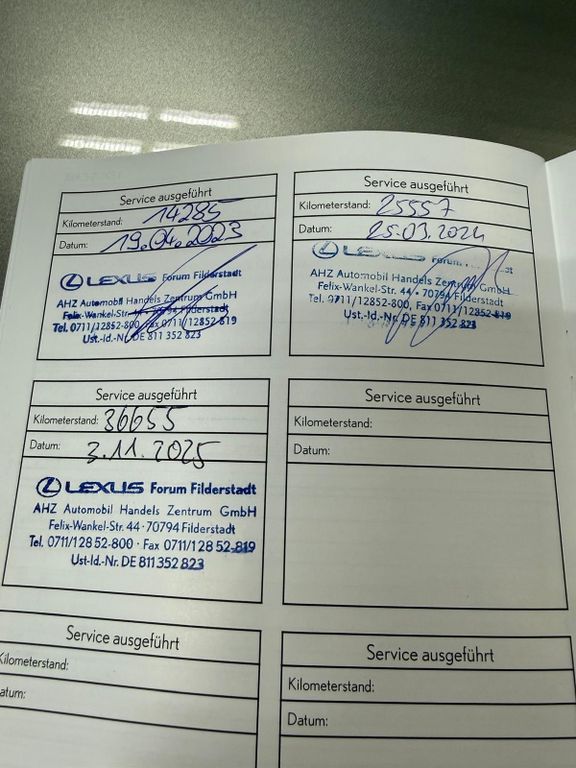 Service ausgeführt
Kilometerstand: 14285
Datum: 19.04.2023
LEXUS Forum Filderstadt
AHZ Automobil Handels Zentrum GmbH
Felix-Wankel-Str. 44 · 70794 Filderstadt
Tel. 0711/12852-800, Fax 0711/12852-819
Ust.-Id.-Nr. DE 811 352 823
Service ausgeführt
Kilometerstand: 25557
Datum: 25.03.2024
LEXUS Forum
AHZ Automobil Handels Zentrum GmbH
Felix-Wankel-Str. 44 · 70794 Filderstadt
Tel. 0711/12852-800, Fax 0711/12852-819
Ust.-Id.-Nr. DE 811 352 823
Service ausgeführt
Kilometerstand: 36655
Datum: 3.11.2025
LEXUS Forum Filderstadt
AHZ Automobil Handels Zentrum GmbH
Felix-Wankel-Str. 44 · 70794 Filderstadt
Tel. 0711/128 52-800 · Fax 0711/128 52-819
Ust-Id.-Nr. DE 811 352 823
Service ausgeführt
Kilometerstand:
Datum:
Service ausgeführt
Kilometerstand:
Datum:
Service ausgeführt
Kilometerstand:
Datum: